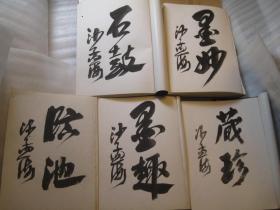 石鼓
沙孟海
墨妙
沙孟海
临池
沙孟海
墨趣
沙孟海
藏珍
沙孟海